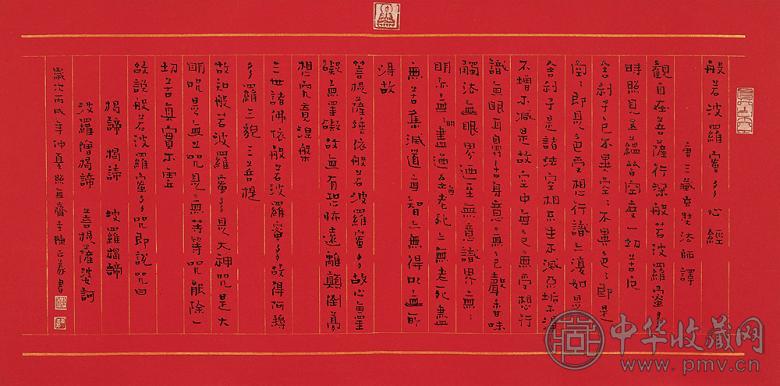 般若波羅蜜多心經
唐三藏玄奘法師譯
觀自在菩薩行深般若波羅蜜多
時照見五蘊皆空度一切苦厄
舍利子色不異空々不異色々即是
空々即是色受想行識亦復如是
舍利子是諸法空相不生不滅不垢不淨
不增不減是故空中無色無受想行
識無眼耳鼻舌身意無色聲香味
觸法無眼界乃至無意識界無々
明亦無々明盡乃至無老死亦無老死盡
無苦集滅道無智亦無得以無所
得故
菩提薩埵依般若波羅蜜多故心無罣
礙無罣礙故無有恐怖遠離顛倒夢
想究竟涅槃
三世諸佛依般若波羅蜜多故得阿耨
多羅三藐三菩提
故知般若波羅蜜多是大神咒是大
明咒是無上咒是無等等咒能除一
切苦真實不虛
故說般若波羅蜜多咒即說咒曰
揭諦 揭諦 波羅揭諦
波羅僧揭諦 菩提薩婆訶
歲次丙戌年仲夏 書
中华收藏网
www.pmv.cn